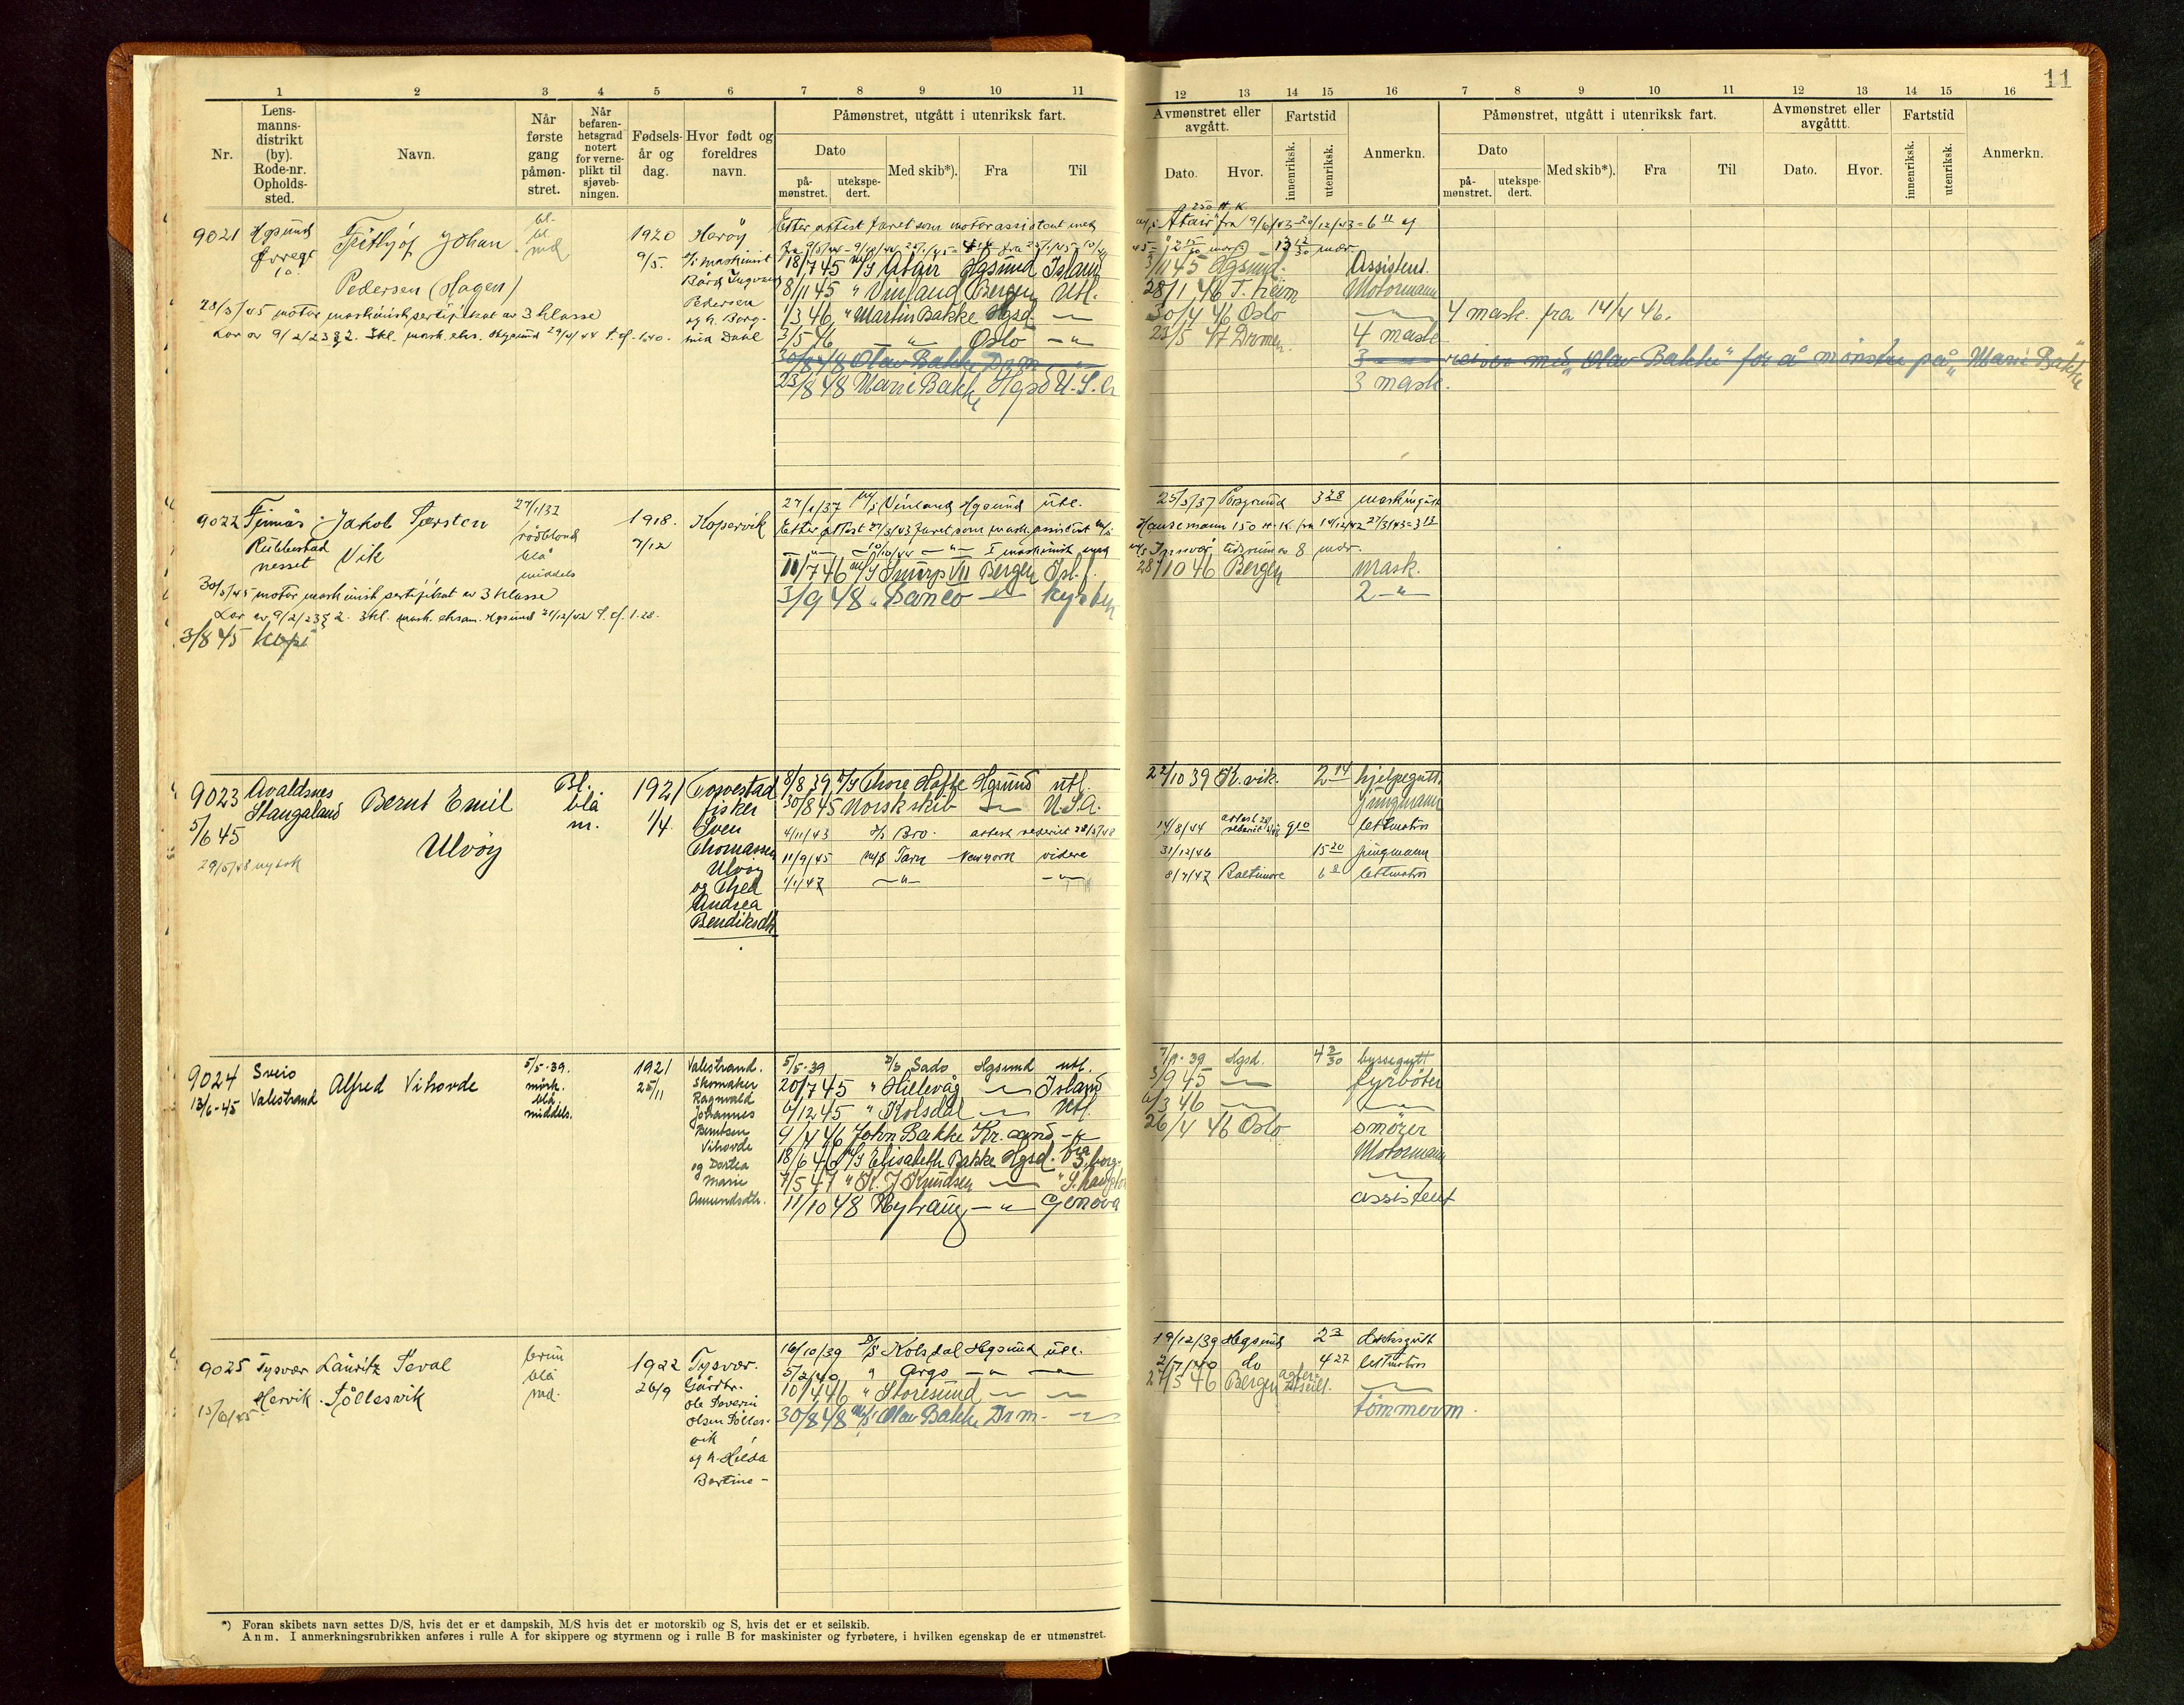 11
1 2 3 4 5 6 7 8 9 10 11
12 13 14 15 16 7 8 9 10 11 12 13 14 15 16
Nr.
Lens-
manns-
distrikt
(by).
Rode-nr.
Opholds-
sted.
Navn.
Når
første
gang
påmøn-
stret.
Når
befaren-
hetsgrad
notert
for verne-
plikt til
sjøveb-
ningen.
Fødsels-
år og
dag.
Hvor født og
foreldres
navn.
Påmønstret, utgått i utenriksk fart.
Dato
på-
mønstret.
utekspe-
dert.
Med skib*).
Fra
Til
Avmønstret eller
avgått.
Dato.
Hvor.
Fartstid
innenriksk.
utenriksk.
Anmerkn.
Påmønstret, utgått i utenriksk fart.
Dato
på-
mønstret.
utekspe-
dert.
Med skib*).
Fra
Til
Avmønstret eller
avgåttt.
Dato.
Hvor.
Fartstid
innenriksk.
utenriksk.
Anmerkn.
9021
Hgsund
Johan
Pedersen (Hagen)
28/3/45 motor maskinist sertifikat av 3 klasse
1920
9/5.
Herøy
maskinist
Bård Ingvald
Pedersen
og h. Borg-
Dahl
Efter attest faret som motorassistent med
Atair" fra 9/6/43-20/12/43=6 11
250 H.K
18/7 45 M/S Atair Hgsund Island
3/11 45 Hgsund. Assistent.
8/11 45 " Vinland Bergen Utl.
28/1 46 T.heim Motormann
1/3 46 " Martin Bakke Hgsd —"—
30/4 46 Oslo —"— 4 mask. fra 14/4 46.
3/5 46 —"— Oslo —"—
23/5 47 Drmen. 4 mask
30/8 48 Olav Bakke Drm. —"—
3 —"— med "Olav Bakke" for å mønstre på "Marie Bakke"
23/8 48 Marie Bakke Hgsd U.S.A
3 mask.
9022
Jakob Torsten
Vik
Rubbestad
nesset
27/1/37
rødblond
blå
middels
1918.
7/12
Kopervik
30/5/45 motor maskinist sertifikat av 3 klasse
Lov av 9/2/23 § 2. 3kl. mask. eksam. Hgsund 21/12/42
3/8 45 Kopi
27/1/37 M/S Vinland Hgsund utl.
25/5/37 Porsgrund 3 28 maskingutt
Efter attest 27/3/43 faret som mask. assistent M/S
Hausemann 150 H.K. fra 14/12/42 27/3/43=3 13
11/7 46 M/S Smørp VII Bergen Isl. f.
28/10 46 Bergen mask.
3/9 48 " Banco —"—
2 —"—
9023
5/6 45
29/5/48 ny bok
Avaldsnes
Stangaland
Bernt Emil
Ulvøy
Bl.
blå
m.
1921
1/4.
Torvestad
fisker
Sven
Thomassen
Ulvøy
og Thea
Andrea
Bendiksdtr.
8/8 39 M/S Thore Hafte Hgsund utl.
22/10 39 K.vik. 2 14 hjelpegutt
30/8 45 Norsk skib —"— U.S.A.
Jungmann
4/11/43 D/S Bro. attest rederiet 28/5/48
14/8/44 attest rederiet 9 10 lettmatros
11/9/45 M/S Tarn Newyork videre
31/12/46 15 20 jungmann
1/1/47 —"— —"—
8/7/47 Baltimore 6 8 lettmatros
9024
13/6-45
Sveio
Valestrand
Alfred Vihovde
5/5-39.
mørk.
blå
middels.
1921
25/11
Valestrand.
Skomaker
Ragnvald
Johannes
Berntsen
Vihovde
og Dortea
Marie
Amundsdtr.
5/5-39 D/S Sado Hgsund utl.
7/9-39 Hgsd. 4 2/30 byssegutt
20/7 45 " Hillevåg —"— Island
3/9 45 —"— fyrbøter
4/12 45 " Kolsdal —"— Utl.
6/3 46 —"— —"—
9/4 46 John Bakke Kr.sand —"—
26/4 46 Oslo smører
18/6 46 M/S Elisabeth Bakke Hgsd. fra G.borg.
Motormann
7/5 47 " K. J Knudsen —"—
—"—
11/10 48 Høyhaug —"— Genova
assistent
9025
15/6/45
Tysvær
Hervik
Lauritz Teval
Tøllesvik
brun
blå
mid.
1922
26/9
Tysvær.
Gårdbr.
Ole Severin
Olsen Tølles-
vik
og h. Hilda
Bertine -
16/10/39 D/S Kolsdal Hgsund utl.
19/12/39 Hgsund 2 3 dekksgutt
5/2/40 " Argo —"— —"—
2/7/40 do 4 27 lettmatros
10/4 46 " Storesund —"— —"—
27/5 46 Bergen agter- —"—
30/8 48 M/S Olav Bakke Drm. —"—
tømmerm.
*) Foran skibets navn settes D/S, hvis det er et dampskib, M/S hvis det er motorskib og S, hvis det er et seilskib.
Anm. I anmerkningsrubrikken anføres i rulle A for skippere og styrmenn og i rulle B for maskinister og fyrbøtere, i hvilken egenskap de er utmønstret.